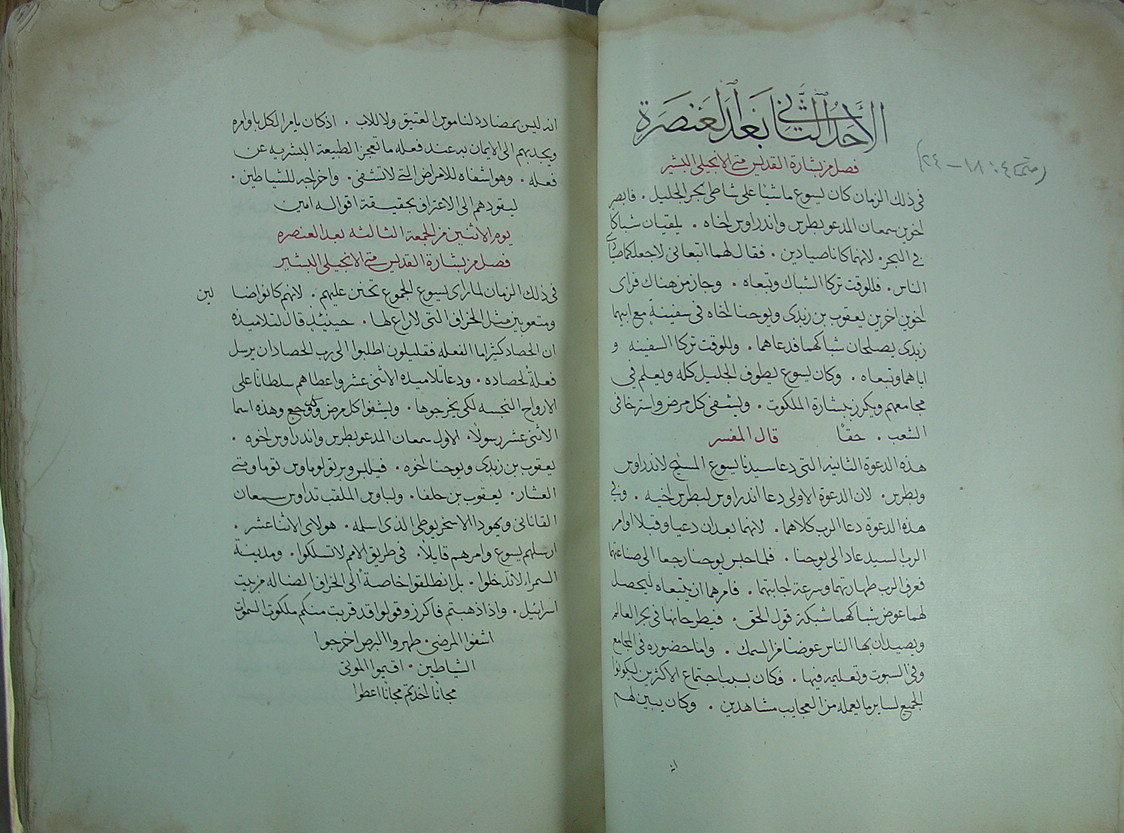 الاحد الثاني بعد العنصرة
فصل من بشارة القديس متي الانجيلي البشير
(متى ٤: ١٨ – ٢٤)
في ذلك الزمان كان يسوع ماشيا على شاطي بحر الجليل . فابصر
اخوين سمعان المدعو بطرس واندراوس اخاه . يلقيان شباكا
في البحر . لانهما كانا صيادين . فقال لهما اتبعاني لاجعلكما صيادي
الناس . فللوقت تركا الشباك وتبعاه . وجاز من هناك فراى
اخوين اخرين يعقوب بن زبدى ويوحنا اخاه في سفينة مع ابيهما
زبدى يصلحان شباكهما فدعاهما . وللوقت تركا السفينه و
اباهما وتبعاه . وكان يسوع يطوف الجليل كله ويعلم في
مجامعهم ويكرز ببشارة الملكوت . ويشفي كل مرض واسترخا في
الشعب . حقا قال المفسر
هذه الدعوة الثانية التي دعا سيدنا يسوع المسيح لاندراوس
وبطرس . لان الدعوة الاولى دعا اندراوس لبطرس اخيه . وفي
هذه الدعوة دعا الرب كلاهما . لانهما بعد ان دعيا وقبلا اوامر
الرب السيد عاد الى يوحنا . فلما حبس يوحنا رجعا الى صناعتهما
فعرف الرب طهارتهما وسرعة اجابتهما . فامرهما ان يتبعاه ليحصل
لهما عوض شباكهما شبكة قول الحق . فيطرحانها في بحر العالم
ويصيدان بها الناس عوضا من السمك . واما حضوره في المجامع
وفي السبوت وتعليمه فيها . فكان بسبب اجتماع الاكثرين ليكونوا
الجميع لساير ما يعمله من العجايب مشاهدين . وكان يبين لهم
انه ليس بمضادد لناموس العتيق ولا للاب . اذ كان يامر الكل باوامره
ويجذبهم الى الايمان به عند فعله ما تعجز الطبيعة البشريه عن
فعله . وهو اشفاه للامراض التي لا تشفى . واخراجه للشياطين .
ليقودهم الى الاعتراف بحقيقة اقواله امين
يوم الاثنين من الجمعة الثالثه بعد العنصره
فصل من بشارة القديس متي الانجيلي البشير
في ذلك الزمان لما راى يسوع الجموع تحنن عليهم . لانهم كانوا ضا لين
ومتعوبين مثل الخراف التي لا راع لها . حينيذ قال لتلاميذه
ان الحصاد كثير اما الفعله فقليلون اطلبوا الى رب الحصاد ان يرسل
فعلة لحصاده . ودعا تلاميذه الاثني عشر واعطاهم سلطانا على
الارواح النجسه لكي يخرجوها . ويشفوا كل مرض وكل وجع وهذه اسما
الاثني عشر رسولا . الاول سمعان المدعو بطرس واندراوس اخوه .
يعقوب بن زبدى ويوحنا اخوه . فيلبس وبرتولوماوس توما ومتي
العشار . يعقوب بن حلفا . ولباوس الملقب تداوس سمعان
القاناني ويهودا الاسخريوطي الذي اسلمه . هولاي الاثنا عشر .
ارسلهم يسوع وامرهم قايلا . في طريق الامم لا تسلكوا . ومدينة
السمراء لا تدخلوا . بل انطلقوا خاصة الى الخراف الضاله من بيت
اسراييل . واذا ذهبتم فاكرزو وقولوا قد قربت منكم ملكوت السموات
اشفوا المرضى . طهروا البرص اخرجوا
الشياطين . اقيموا الموتى
مجانا اخذتم مجانا اعطوا